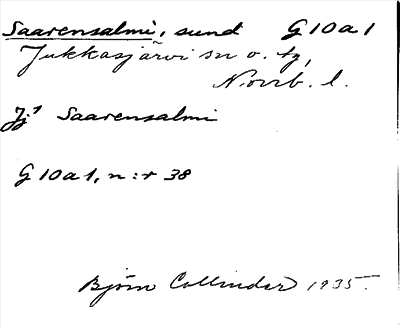 Saarensalmi, sund G 10 a 1
Jukkasjärvi sn o. tg,
Norrb. l.
Jj. Saarensalmi
G 10 a 1, n:r 38
Björn Collinder 1935.